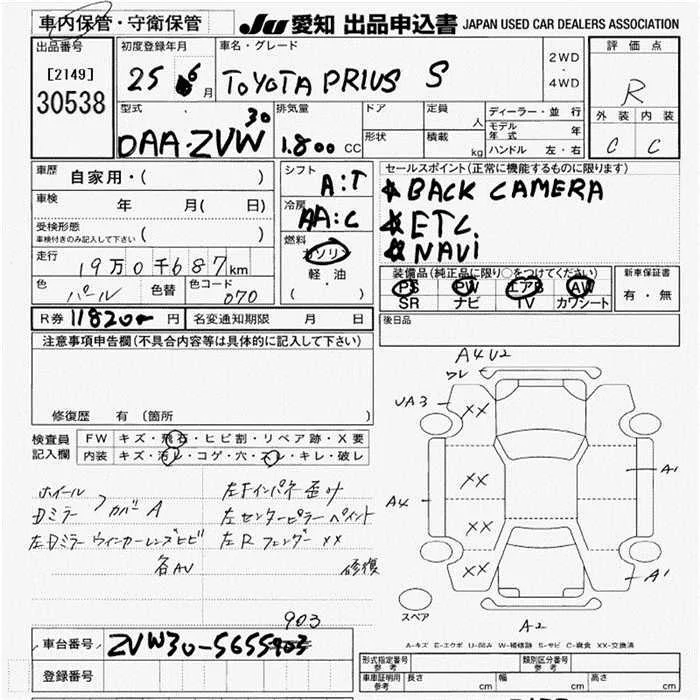 車内保管・守衛保管
JU 愛知 出品申込書 JAPAN USED CAR DEALERS ASSOCIATION
出品番号
[2149]
30538
初度登録年月
25 6 月
車名・グレード
TOYOTA PRIUS S
2WD
・
4WD
評価点
R
外装 内装
C C
型式
DAA-ZVW30
排気量
1.800 CC
ドア
形状
定員 人
積載 kg
ディーラー・並行
モデル年式 年
ハンドル 左・右
車歴 自家用・( )
車検 年 月( 日)
受検形態
車検付きのみ記入して下さい ( )
走行 19万0千687km
色 パール 色替 色コード 070
シフト A:T
冷房 AA:C
燃料
ガソリン
軽油
( ・ )
セールスポイント(正常に機能するものに限ります)
★BACK CAMERA
★ETC.
★NAVi
装備品(純正品に限り○をつけてください)
PS PW エアB AW
SR ナビ TV カワシート
新車保証書
有・無
R券 11820- 円 名変通知期限 月 日
後日品
注意事項申告欄(不具合内容等は具体的に記入して下さい)
修復歴 有(箇所 )
検査員記入欄
FW キズ・飛石・ヒビ割・リペア跡・X要
内装 キズ・汚レ・コゲ・穴・スレ・キレ・破レ
ホイール
Dミラー カバー A
左Dミラー ウインカーレンズヒビ
各AU
左Fインパネ歪み
左センターピラー ペイント
左Rフェンダー XX
修復
A4U2
ワレ
UA3
XX
XX
XX
XX
A4
A1
A1
A2
スペア
A-キズ E-エクボ U-凹み W-補修跡 S-サビ C-腐食 XX-交換済
903
車台番号 ZVW30-5655903
登録番号
形式指定番号 参考
類別区分番号 参考
車庫証明用 参考 長さ cm 幅 cm 高さ cm